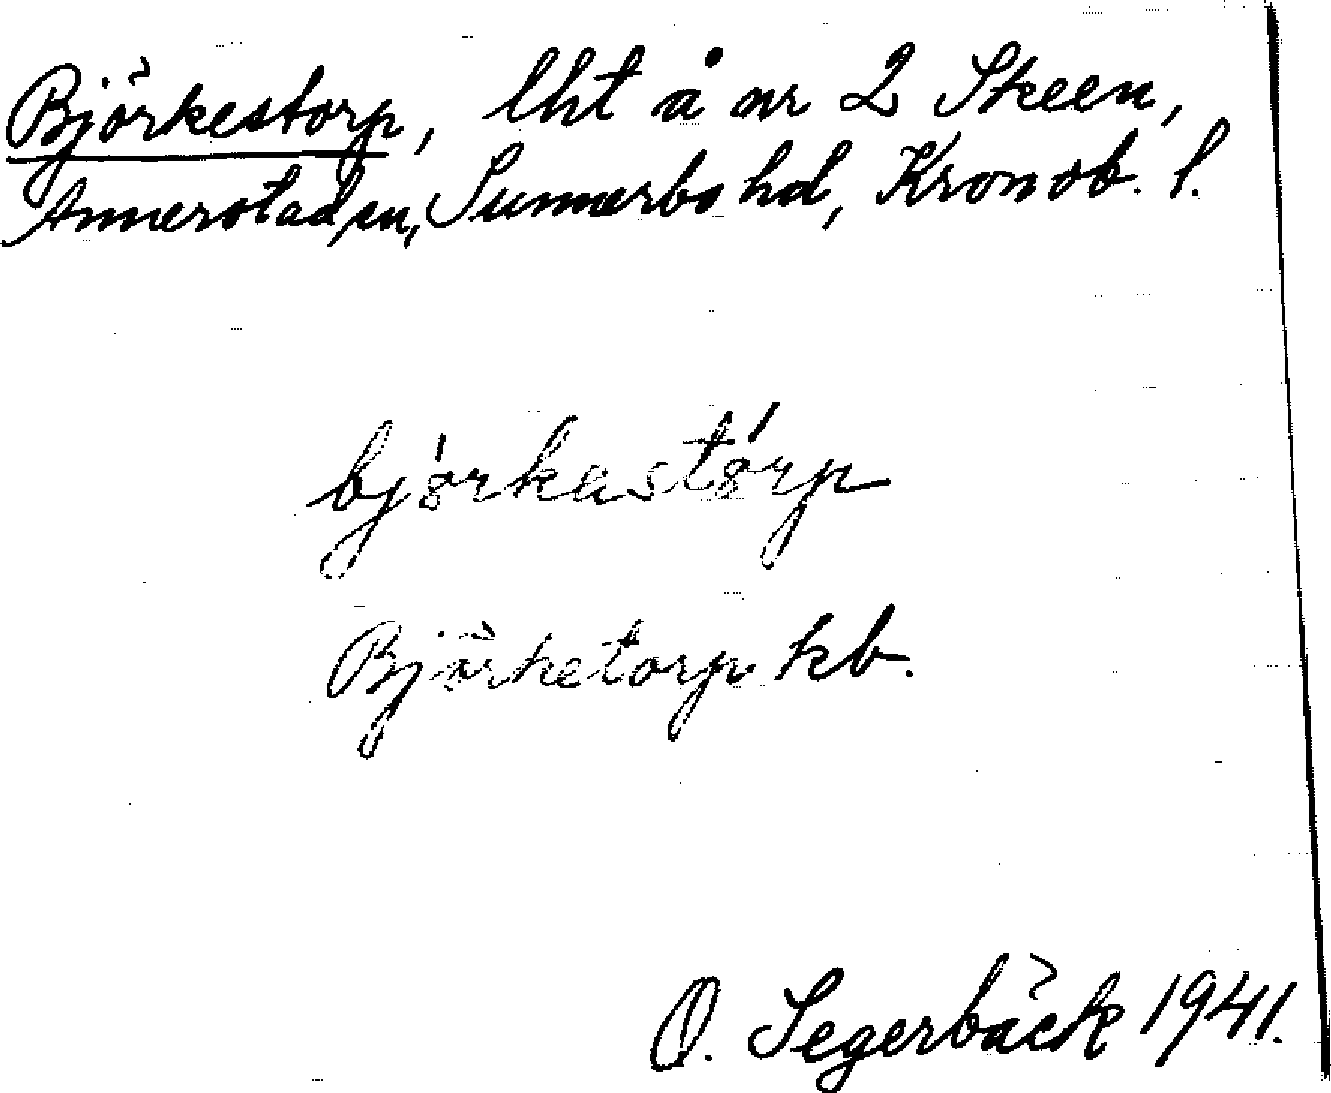 Björkestorp, lht å nr 2 Skeen,
Annerstad sn, Sunnerbo hd, Kronob. l.
bjö́rkastórp
Björketorp kb.
O. Segerbäck 1941.